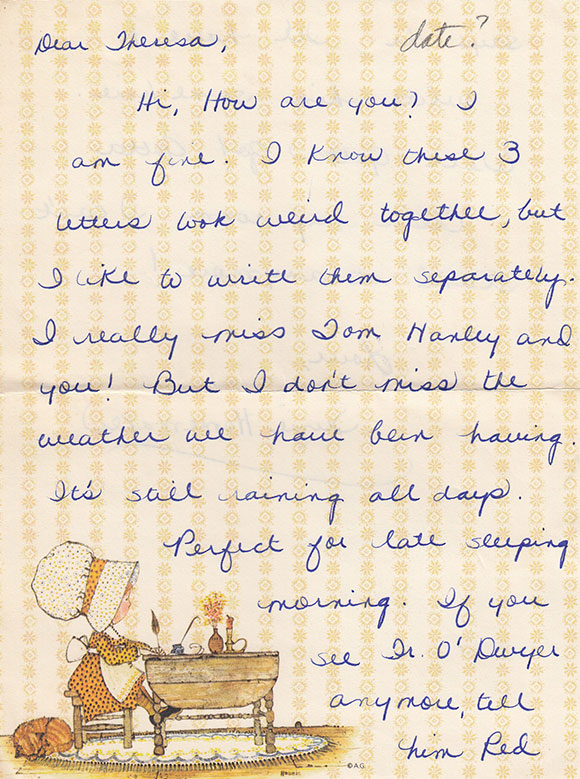 Dear Theresa, date?
Hi, How are you? I
am fine. I know these 3
letters look weird together, but
I like to write them separately.
I really miss Tom Hanley and
you! But I don't miss the
weather we have been having.
It's still raining all days.
Perfect for late sleeping
morning. If you
see Fr. O'Dwyer
anymore, tell
him Red
©AG